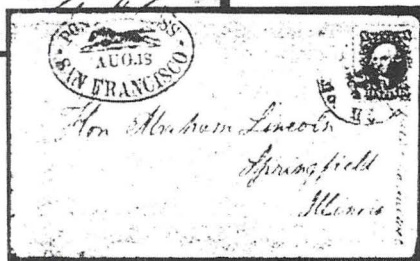 AUG.18
SAN FRANCISCO
Hon Abraham Lincoln
Springfield
Illinois